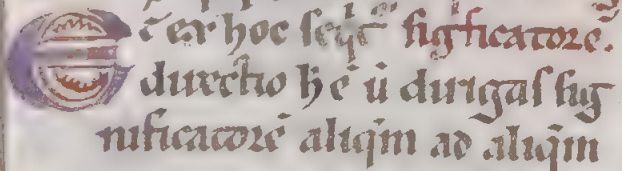 Et ex hoc seq̄t̄ sigͥficatorē.
directio hē ū dirigas sig
nificatorē aliq̄m ad aliq̄m